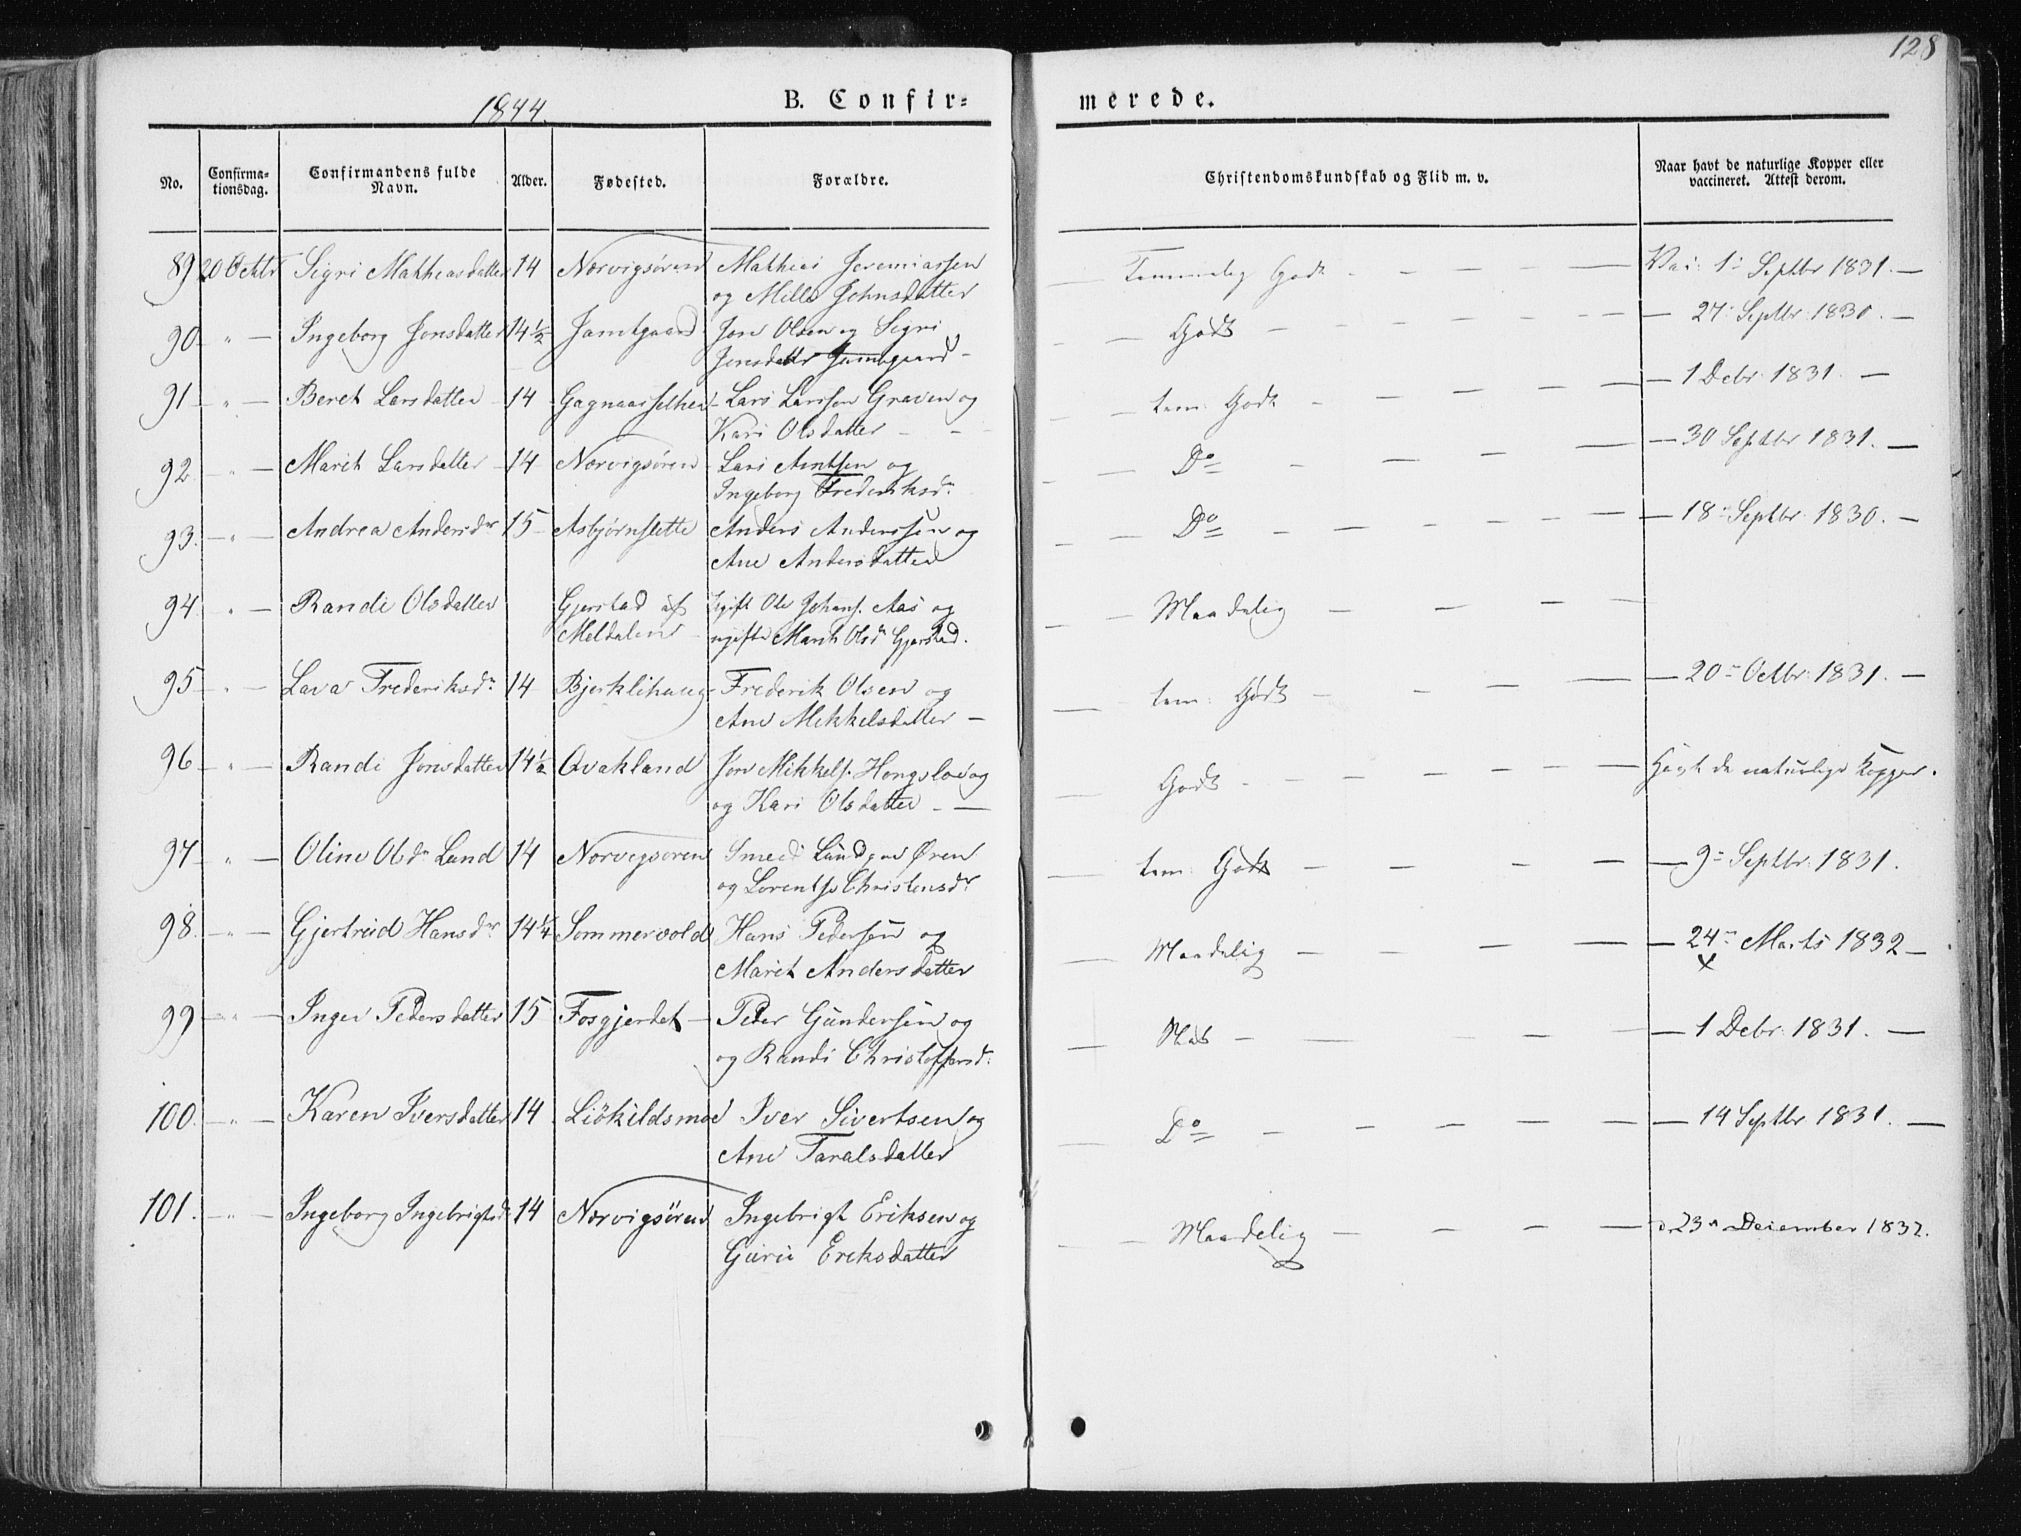 128
1844.
B. Confir=
merede.
No.
Confirma-
tionsdag.
Confirmandens fulde
Navn.
Alder.
Fødested.
Forældre.
Christendomskundskab og Flid m. v.
Naar havt de naturlige Kopper eller
vaccineret. Attest derom.
89 20 Octbr Sigri Matheasdatter 14 Norvigsøren Mathias Jeremiassen
og Mille Johnsdatter
Temmelig Godt — — — — Vac: 1: Septbr 1831. —
90. " — Ingeborg Jonsdatter 14½ Jamtgaard Jon Olsen og Sigri
Jonsdatter Jamtgaard —
— — Godt — — — — — 27: Septbr: 1830. —
91 — " — Beret Larsdatter 14 Gagnaassethe — Lars Larssen Graven og
Kari Olsdatter — —
— — tem: Godt — — — — — 1 Debr: 1831. —
92. " — Marit Larsdatter 14 Norvigsøren Lars Arntsen og
Ingeborg Frederiksdr
— — Do — — — — — 30 Septbr 1831. —
93. — " — Andrea Andersdr 15 Asbjørnslette Anders Anderssen og
Ane Andersdatter
— — Do — — — — — 18 Septbr: 1830. —
94. " — Randi Olsdatter Gjerstad af Meldalen
Ole Johans. Aas og
ugifte Marit Olsdr Gjerstad.
— — Maadelig — — — —
95 — " — Lava Frederiksdr 14 Bjerklihaug Frederik Olsen og
Ane Mikkelsdatter —
— tem: Godt — — — — — 20 Octbr: 1831. —
96 — " — Randi Jonsdatter 14½ Qvakland Jon Mikkels. Hongsloe og
og Kari Olsdatter — —
— Godt — — — — — de naturlige Kopper.
97 — " — Oline Olsdr Lund 14 Norvigsøren Smed Lund, Øren
og Lorentse Christensdr
— tem: Godt — — — — — 9 Septbr: 1831.
98. — " — Gjertrud Hansdr 14¼ Sommervold Hans Pedersen og
Marit Andersdatter
— Maadelig — — — — — 24 Marts 1832 —
x
99 — " — Inger Pedersdatter 15 Fosgjerdet — Peder Gundersen og
og Randi Christoffersd:
— Maa — — — — — 1 Debr: 1831. —
100. — " — Karen Iversdatter 14 Liökildsmoe Iver Sivertsen og
Ane Taralsdatter
— Do — — — — — 14 Septbr 1831. —
101. — " — Ingeborg Ingebrigtsd 14 Norvigsøren Ingebrigt Eriksen og
Guru Eriksdatter
— — Maadelig — — — — 23 December 1832.